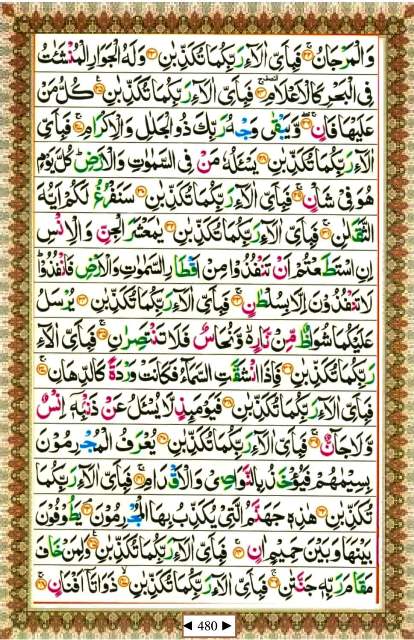 وَالْمَرْجَانُ ۚ۝۲۲ فَبِاَيِّ اٰلَآءِ رَبِّكُمَا تُكَذِّبٰنِ ۝۲۳ وَلَهُ الْجَوَارِ الْمُنْشَئٰتُ
فِي الْبَحْرِ كَالْاَعْلَامِ ۚ۝۲۴ فَبِاَيِّ اٰلَآءِ رَبِّكُمَا تُكَذِّبٰنِ ۝۲۵ كُلُّ مَنْ
عَلَيْهَا فَانٍ ۚ۝۲۶ وَّيَبْقٰى وَجْهُ رَبِّكَ ذُو الْجَلٰلِ وَالْاِكْرَامِ ۚ۝۲۷ فَبِاَيِّ
اٰلَآءِ رَبِّكُمَا تُكَذِّبٰنِ ۝۲۸ يَسْـَٔلُهٗ مَنْ فِي السَّمٰوٰتِ وَالْاَرْضِ ؕ كُلَّ يَوْمٍ
هُوَ فِيْ شَاْنٍ ۚ۝۲۹ فَبِاَيِّ اٰلَآءِ رَبِّكُمَا تُكَذِّبٰنِ ۝۳۰ سَنَفْرُغُ لَكُمْ اَيُّهَ
الثَّقَلٰنِ ۚ۝۳۱ فَبِاَيِّ اٰلَآءِ رَبِّكُمَا تُكَذِّبٰنِ ۝۳۲ يٰمَعْشَرَ الْجِنِّ وَالْاِنْسِ
اِنِ اسْتَطَعْتُمْ اَنْ تَنْفُذُوْا مِنْ اَقْطَارِ السَّمٰوٰتِ وَالْاَرْضِ فَانْفُذُوْا ؕ
لَا تَنْفُذُوْنَ اِلَّا بِسُلْطٰنٍ ۚ۝۳۳ فَبِاَيِّ اٰلَآءِ رَبِّكُمَا تُكَذِّبٰنِ ۝۳۴ يُرْسَلُ
عَلَيْكُمَا شُوَاظٌ مِّنْ نَّارٍ ۙ۬ وَّنُحَاسٌ فَلَا تَنْتَصِرٰنِ ۚ۝۳۵ فَبِاَيِّ اٰلَآءِ
رَبِّكُمَا تُكَذِّبٰنِ ۝۳۶ فَاِذَا انْشَقَّتِ السَّمَآءُ فَكَانَتْ وَرْدَةً كَالدِّهَانِ ۚ۝۳۷
فَبِاَيِّ اٰلَآءِ رَبِّكُمَا تُكَذِّبٰنِ ۝۳۸ فَيَوْمَىِٕذٍ لَّا يُسْـَٔلُ عَنْ ذَنْۢبِهٖۤ اِنْسٌ
وَّلَا جَآنٌّ ۚ۝۳۹ فَبِاَيِّ اٰلَآءِ رَبِّكُمَا تُكَذِّبٰنِ ۝۴۰ يُعْرَفُ الْمُجْرِمُوْنَ
بِسِيْمٰهُمْ فَيُؤْخَذُ بِالنَّوَاصِيْ وَالْاَقْدَامِ ۚ۝۴۱ فَبِاَيِّ اٰلَآءِ رَبِّكُمَا
تُكَذِّبٰنِ ۝۴۲ هٰذِهٖ جَهَنَّمُ الَّتِيْ يُكَذِّبُ بِهَا الْمُجْرِمُوْنَ ۘ۝۴۳ يَطُوْفُوْنَ
بَيْنَهَا وَبَيْنَ حَمِيْمٍ اٰنٍ ۚ۝۴۴ فَبِاَيِّ اٰلَآءِ رَبِّكُمَا تُكَذِّبٰنِ ۝۴۵ وَلِمَنْ خَافَ
مَقَامَ رَبِّهٖ جَنَّتٰنِ ۚ۝۴۶ فَبِاَيِّ اٰلَآءِ رَبِّكُمَا تُكَذِّبٰنِ ۙ۝۴۷ ذَوَاتَاۤ اَفْنَانٍ ۚ۝۴۸
◄ 480 ►